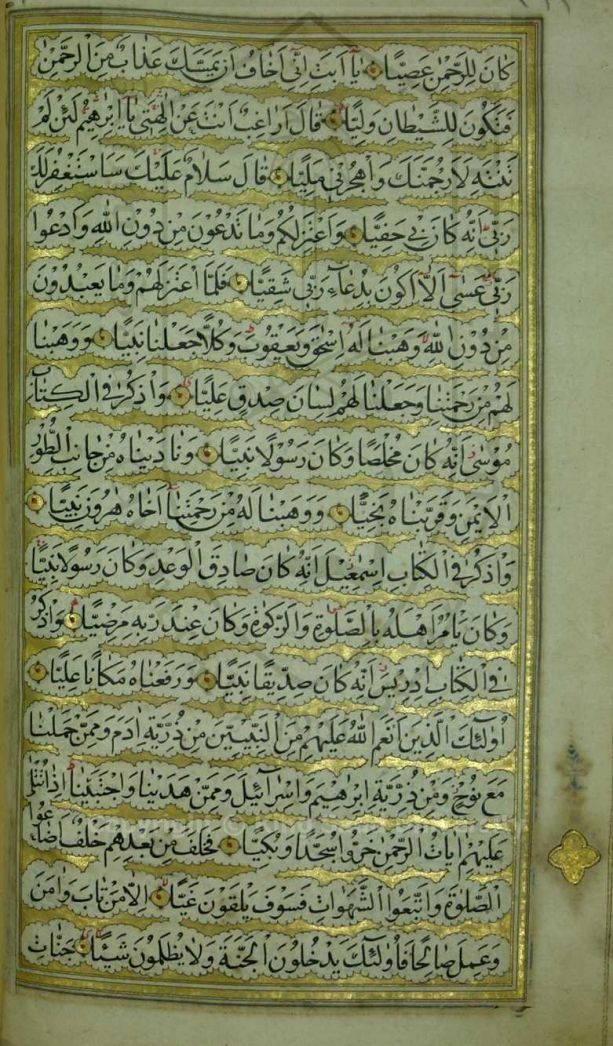 كَانَ لِلرَّحْمٰنِ عَصِيًّا يَٓا اَبَتِ اِنّٓى اَخَافُ اَنْ يَمَسَّكَ عَذَابٌ مِنَ الرَّحْمٰنِ
فَتَكُونَ لِلشَّيْطَانِ وَلِيًّا قَالَ اَرَاغِبٌ اَنْتَ عَنْ اٰلِهَتٖى يَٓا اِبْرٰهٖيمُ لَئِنْ لَمْ
تَنْتَهِ لَاَرْجُمَنَّكَ وَاهْجُرْنٖى مَلِيًّا قَالَ سَلَامٌ عَلَيْكَ سَاَسْتَغْفِرُ لَكَ
رَبّٖى اِنَّهُ كَانَ بٖى حَفِيًّا وَاَعْتَزِلُكُمْ وَمَا تَدْعُونَ مِنْ دُونِ اللّٰهِ وَاَدْعُوا
رَبّٖى عَسٰٓى اَلَّٓا اَكُونَ بِدُعَٓاءِ رَبّٖى شَقِيًّا فَلَمَّا اعْتَزَلَهُمْ وَمَا يَعْبُدُونَ
مِنْ دُونِ اللّٰهِ وَهَبْنَا لَهُ اِسْحٰقَ وَيَعْقُوبَ وَكُلًّا جَعَلْنَا نَبِيًّا وَوَهَبْنَا
لَهُمْ مِنْ رَحْمَتِنَا وَجَعَلْنَا لَهُمْ لِسَانَ صِدْقٍ عَلِيًّا وَاذْكُرْ فِى الْكِتَابِ
مُوسٰٓى اِنَّهُ كَانَ مُخْلَصًا وَكَانَ رَسُولًا نَبِيًّا وَنَادَيْنَاهُ مِنْ جَانِبِ الطُّورِ
الْاَيْمَنِ وَقَرَّبْنَاهُ نَجِيًّا وَوَهَبْنَا لَهُ مِنْ رَحْمَتِنَٓا اَخَاهُ هٰرُونَ نَبِيًّا
وَاذْكُرْ فِى الْكِتَابِ اِسْمٰعٖيلَ اِنَّهُ كَانَ صَادِقَ الْوَعْدِ وَكَانَ رَسُولًا نَبِيًّا
وَكَانَ يَاْمُرُ اَهْلَهُ بِالصَّلٰوةِ وَالزَّكٰوةِ وَكَانَ عِنْدَ رَبِّهٖ مَرْضِيًّا وَاذْكُرْ
فِى الْكِتَابِ اِدْرٖيسَ اِنَّهُ كَانَ صِدّٖيقًا نَبِيًّا وَرَفَعْنَاهُ مَكَانًا عَلِيًّا
اُولٰٓئِكَ الَّذٖينَ اَنْعَمَ اللّٰهُ عَلَيْهِمْ مِنَ النَّبِيّٖنَ مِنْ ذُرِّيَّةِ اٰدَمَ وَمِمَّنْ حَمَلْنَا
مَعَ نُوحٍ وَمِنْ ذُرِّيَّةِ اِبْرٰهٖيمَ وَاِسْرَٓائٖيلَ وَمِمَّنْ هَدَيْنَا وَاجْتَبَيْنَا اِذَا تُتْلٰى
عَلَيْهِمْ اٰيَاتُ الرَّحْمٰنِ خَرُّوا سُجَّدًا وَبُكِيًّا فَخَلَفَ مِنْ بَعْدِهِمْ خَلْفٌ اَضَاعُوا
الصَّلٰوةَ وَاتَّبَعُوا الشَّهَوَاتِ فَسَوْفَ يَلْقَوْنَ غَيًّا اِلَّا مَنْ تَابَ وَاٰمَنَ
وَعَمِلَ صَالِحًا فَاُولٰٓئِكَ يَدْخُلُونَ الْجَنَّةَ وَلَا يُظْلَمُونَ شَيْئًا جَنَّاتِ